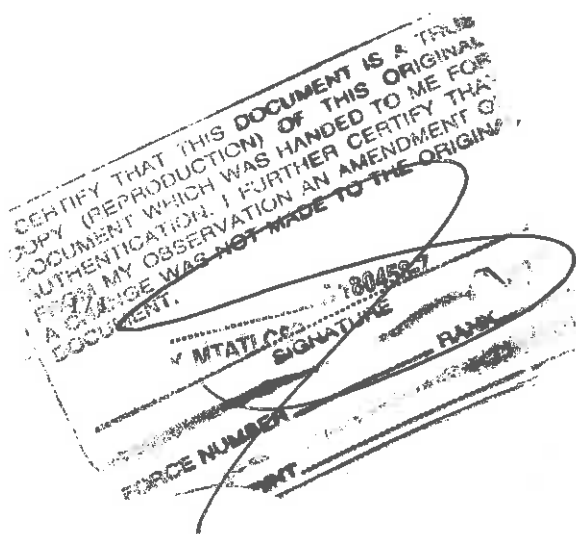 CERTIFY THAT THIS DOCUMENT IS A TRUE
COPY (REPRODUCTION) OF THIS ORIGINAL
DOCUMENT WHICH WAS HANDED TO ME FOR
AUTHENTICATION. I FURTHER CERTIFY THAT
FROM MY OBSERVATION AN AMENDMENT O
A CHANGE WAS NOT MADE TO THE ORIGINAL
DOCUMENT.
80458-7
SIGNATURE
RANK
FORCE NUMBER